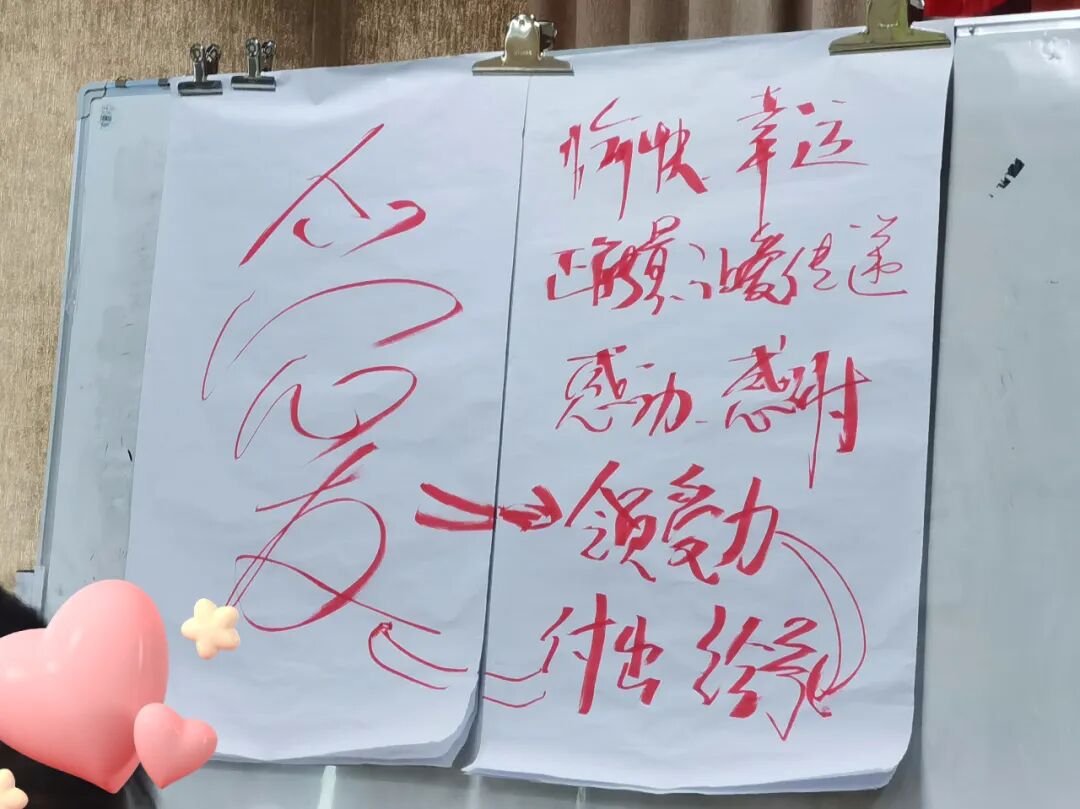 愛
愉快 幸运
正能量 传递
感动 感谢
领受力
付出 给予